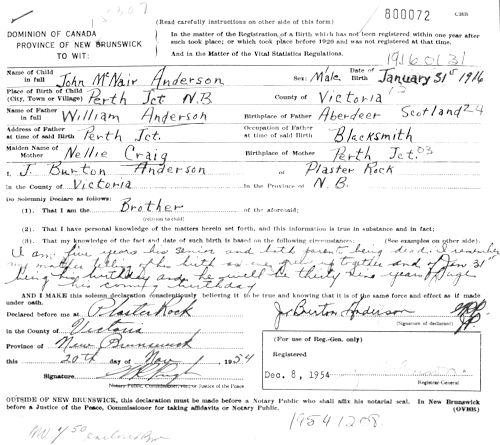 15307
800072
CBR
(Read carefully instructions on other side of this form)
DOMINION OF CANADA
PROVINCE OF NEW BRUNSWICK
TO WIT:
In the matter of the Registration of a Birth which has not been registered within one year after
such took place; or which took place before 1920 and was not registered at that time.
And in the Matter of the Vital Statistics Regulations.
19160131
Name of Child in full John McNair Anderson Sex: Male Date of Birth January 31st 1916
Place of Birth of Child (City, Town or Village) Perth Jct N.B County of Victoria 13
Name of Father in full William Anderson Birthplace of Father Aberdeer Scotland 24
Address of Father at time of said Birth Perth Jct. Occupation of Father at time of said Birth Blacksmith
Maiden Name of Mother Nellie Craig Birthplace of Mother Perth Jct. 03
I, J. Burton Anderson of Plaster Rock
in the County of Victoria In the Province of N.B.
Do Solemnly Declare as follows:
(1). That I am the Brother of the aforesaid;
(relation to child)
(2). That I have personal knowledge of the matters herein set forth, and this information is true in substance and in fact;
(3). That my knowledge of the fact and date of such birth is based on the following circumstances: (See examples on other side).
I am five years his senior and both parents being dead. I remember
my mother telling of his birth as we grew up together and of Jan 31st
being his birthday and he will be thirty nine years of age
his coming birthday
AND I MAKE this solemn declaration conscientiously believing it to be true and knowing that it is of the same force and effect as if made
under oath.
Declared before me at Plaster Rock
in the County of Victoria
Province of New Brunswick
this 20th day of Nov 1954
Signature
Notary Public, Commissioner, etc., or Justice of the Peace
J. Burton Anderson
(Signature of declarant)
(For use of Reg.-Gen. only)
Registered
Dec. 8, 1954
Registrar-General
OUTSIDE OF NEW BRUNSWICK, this declaration must be made before a Notary Public who shall affix his notarial seal. In New Brunswick
before a Justice of the Peace, Commissioner for taking affidavits or Notary Public.
(OVER)
19541208